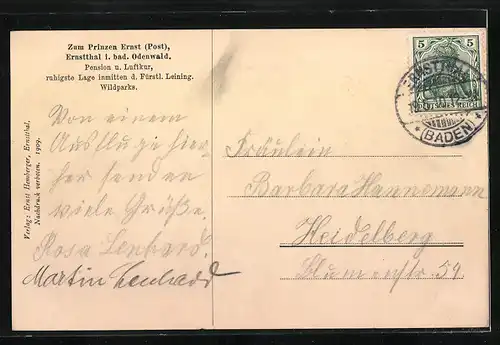 Zum Prinzen Ernst (Post),
Ernstthal i. bad. Odenwald.
Pension u. Luftkur,
ruhigste Lage inmitten d. Fürstl. Leining.
Wildparks.
Verlag: Ernst Hemberger, Ernstthal.
Nachdruck verboten. 1909.
Von einem
Ausfluge hier-
her senden
viele Grüße.
Rosa Lenhard.
Martin Lenhard
5 5
DEUTSCHES REICH
ERNSTTHAL
* (BADEN) *
Fräulein
Barbara Hannemann
Heidelberg
Blumenstr. 59